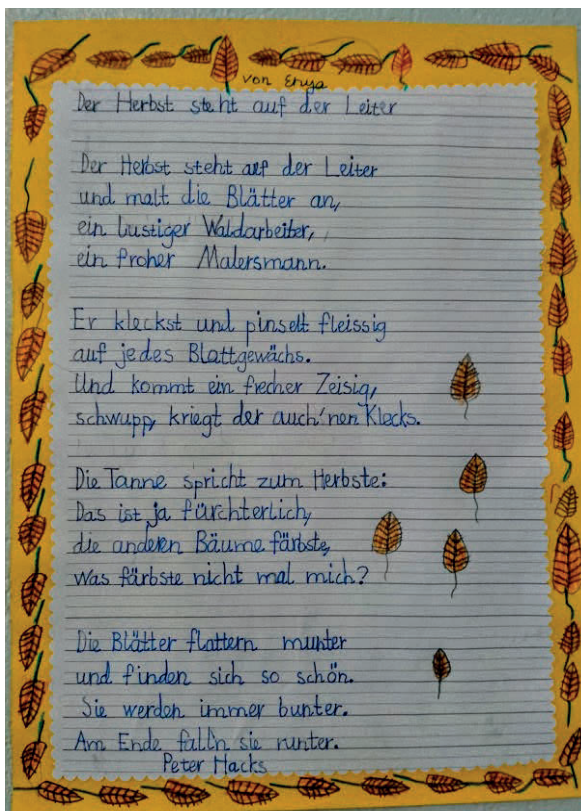 von Enya
Der Herbst steht auf der Leiter
Der Herbst steht auf der Leiter
und malt die Blätter an,
ein lustiger Waldarbeiter,
ein froher Malersmann.
Er kleckst und pinselt fleissig
auf jedes Blattgewächs.
Und kommt ein frecher Zeisig,
schwupp, kriegt der auch 'nen Klecks.
Die Tanne spricht zum Herbste:
Das ist ja fürchterlich,
die anderen Bäume färbste,
Was färbste nicht mal mich?
Die Blätter flattern munter
und finden sich so schön.
Sie werden immer bunter.
Am Ende fall'n sie runter.
Peter Hacks